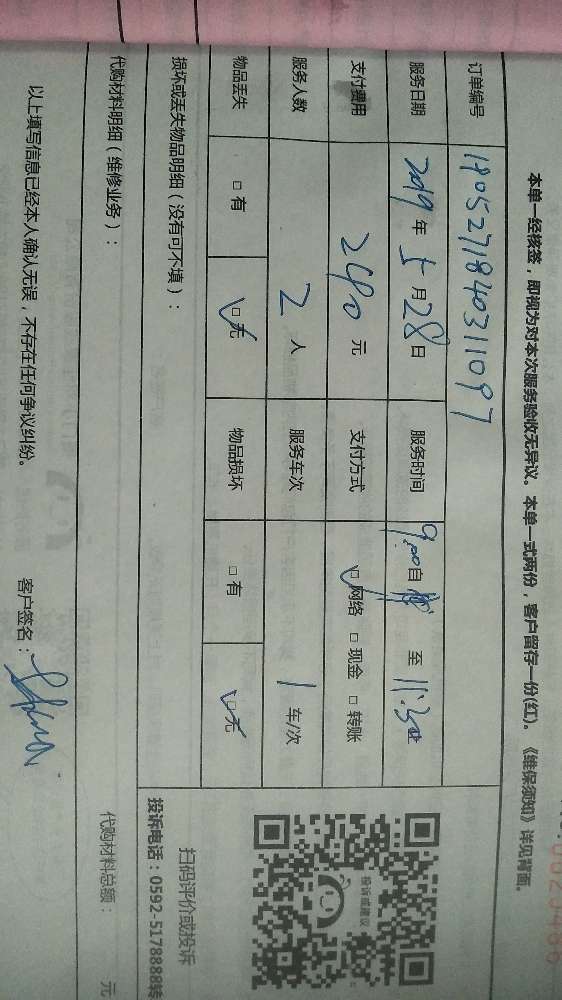 本单一经核签，即视为对本次服务验收无异议。本单一式两份，客户留存一份(红)。《维保须知》详见背面。
订单编号 18052718403 11097
服务日期 2019 年 5 月 28 日 服务时间 9:00 自 至 11:30
支付费用 240 元 支付方式 ☑ 网络 □ 现金 □ 转账
服务人数 2 人 服务车次 1 车/次
物品丢失 □ 有 ☑ 无 物品损坏 □ 有 ☑ 无
损坏或丢失物品明细（没有可不填）：
投诉或建议
扫码评价或投诉
投诉电话：0592-5178888转
代购材料明细（维修业务）： 代购材料总额： 元
以上填写信息已经本人确认无误，不存在任何争议纠纷。 客户签名：